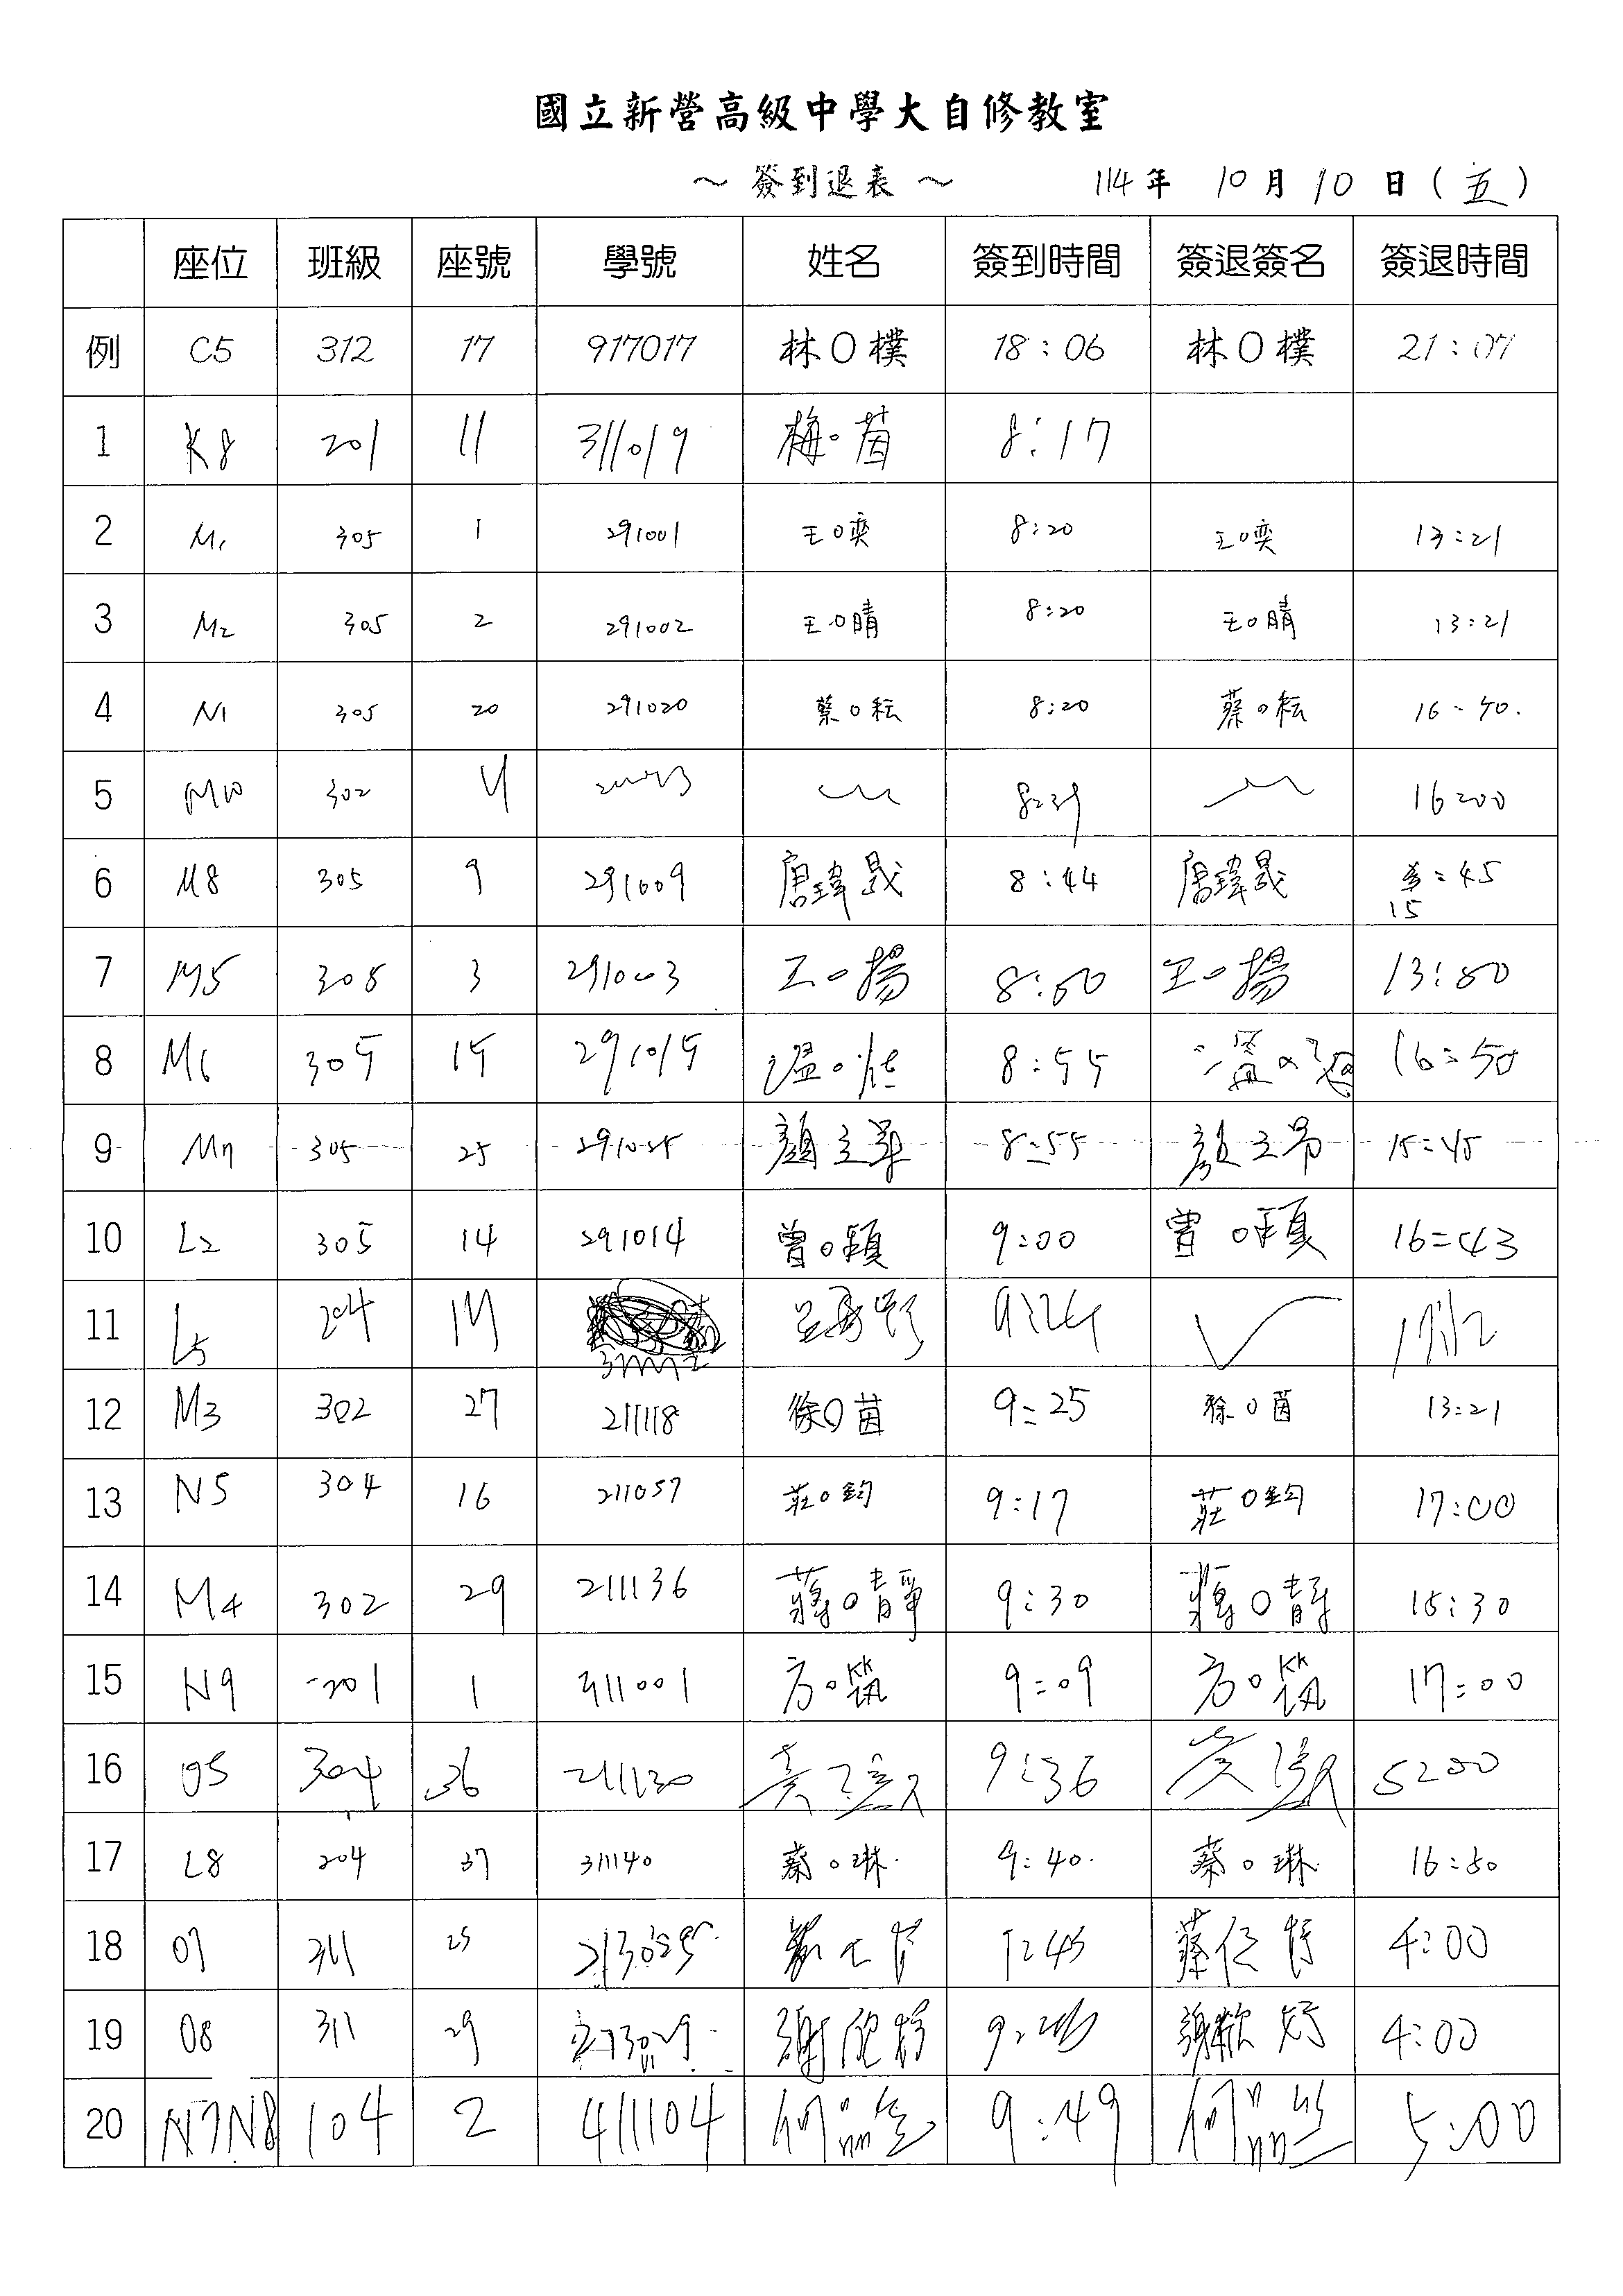 國立新營高級中學大自修教室
～ 簽到退表 ～ 114年 10月10日(五)
座位 班級 座號 學號 姓名 簽到時間 簽退簽名 簽退時間
例 C5 312 17 917017 林O樸 18:06 林O樸 21:07
1 K8 201 11 311019 梅O茵 8:17
2 M1 305 1 291001 王O奕 8:20 王O奕 13:21
3 M2 305 2 291002 王O晴 8:20 王O晴 13:21
4 N1 305 20 291020 蔡O耘 8:20 蔡O耘 16:40.
5 M10 302 4 8:39 16:00
6 M8 305 9 291009 唐瑋晟 8:44 唐瑋晟 15:45
7 M5 305 3 291003 王O揚 8:50 王O揚 13:50
8 M6 305 15 291015 溫O恬 8:55 16:50
9 M7 305 25 291025 顏立 8:55 顏立 15:45
10 L2 305 14 291014 曾O穎 9:00 曾O穎 16:43
11 L5 204 9:24
12 M3 302 27 211118 徐O茵 9:25 徐O茵 13:21
13 N5 304 16 211057 莊O鈞 9:17 莊O鈞 17:00
14 M4 302 29 211136 蔣O靜 9:30 蔣O靜 15:30
15 N9 201 1 311001 方O筑 9:09 方O筑 17:00
16 O5 304 36 211130 9:36 5:00
17 L8 204 37 311140 蔡O琳 9:40 蔡O琳 16:50
18 O7 311 25 213025 蔡 蔡 4:00
19 O8 311 29 謝欣妤 謝欣妤 4:00
20 N7N8 104 2 411104 何品 9:49 何品 5:00